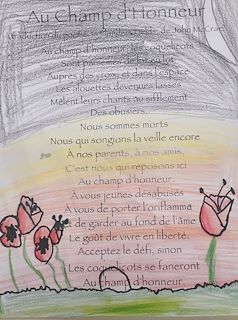 Au Champ d'Honneur
de John McCrae
Au champ d'honneur, les coquelicots
Sont parsemés de lot en lot
Auprès des croix; et dans l'espace
Les alouettes devenues lasses
Mêlent leurs chants au sifflement
Des obusiers.
Nous sommes morts
Nous qui songions la veille encore
À nos parents, à nos amis,
C'est nous qui reposons ici
Au champ d'honneur.
À vous jeunes désabusés
À vous de porter l'oriflamme
Et de garder au fond de l'âme
Le goût de vivre en liberté.
Acceptez le défi, sinon
Les coquelicots se faneront
Au champ d'honneur.